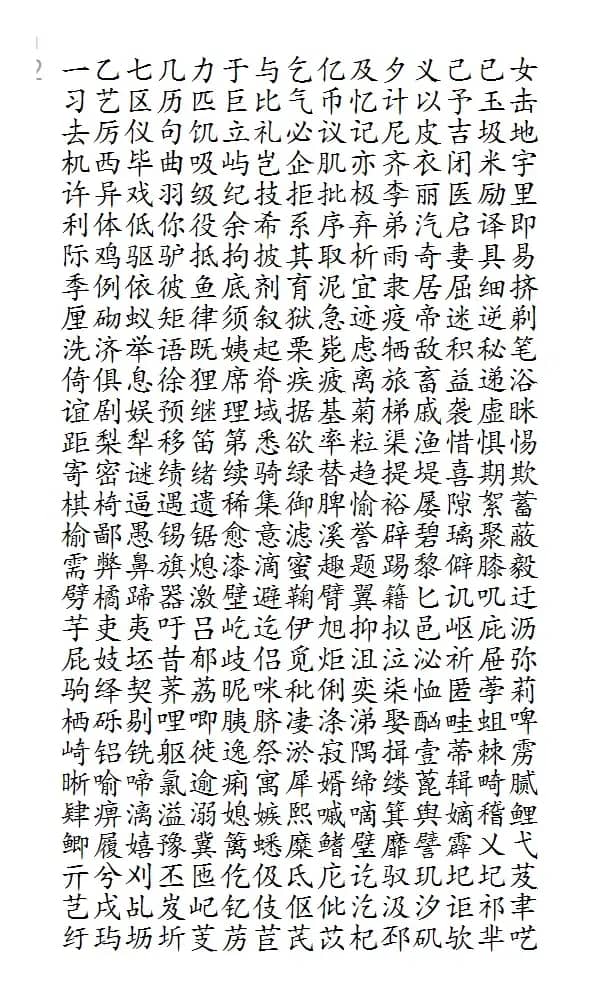 2
一乙七几力于与乞亿及夕义己已女
习艺区历匹巨比气币忆计以予玉击
去厉仪句饥立礼必议记尼皮吉圾地
机西毕曲吸屿岂企肌亦齐衣闭米宇
许异戏羽级纪技拒批极李丽医励里
利体低你役余希系序弃弟汽启译即
际鸡驱驴抵拘披其取析雨奇妻具易
季例依彼鱼底剂育泥宜隶居屈细挤
厘砌蚁矩律须叙狱急迹疫帝迷逆剃
洗济举语既姨起栗毙虑牺敌积秘笔
倚俱息徐狸席脊疾疲离旅畜益递浴
谊剧娱预继理域据基菊梯戚袭虚眯
距梨犁移笛第悉欲率粒渠渔惜惧惕
寄密谜绩绪续骑绿替趋提堤喜期欺
棋椅逼遇遗稀集御脾愉裕屡隙絮蓄
榆鄙愚锡锯愈意滤溪誉辟碧璃聚蔽
需弊鼻旗熄漆滴蜜趣题踢黎僻膝毅
劈橘蹄器激壁避鞠臂翼籍匕讥叽迂
芋吏夷吁吕屹迄伊旭抑拟邑岖庇沥
屁妓坯昔郁歧侣觅炬沮泣泌祈屉弥
驹绎契荠荔昵咪秕俐奕柒恤匿荸莉
栖砾剔哩唧胰脐凄涤涕娶酗畦蛆啤
崎铝铣躯徙逸祭淤寂隅揖壹蒂棘雳
晰喻啼氯逾痢寓犀婿缔缕蓖辑畸腻
肆痹漓溢溺媳嫉熙嘁嘀箕舆嫡稽鲤
鲫履嬉豫冀篱蟋糜鳍璧靡譬霹乂弋
亓兮刈丕匜仡伋氐庀讫驭玑圮圯芨
艺戌乩岌屺钇伎伛仳汔汲汐讵祁聿
纡玙坜圻芰苈苣芪苡杞邳矶欤芈呓